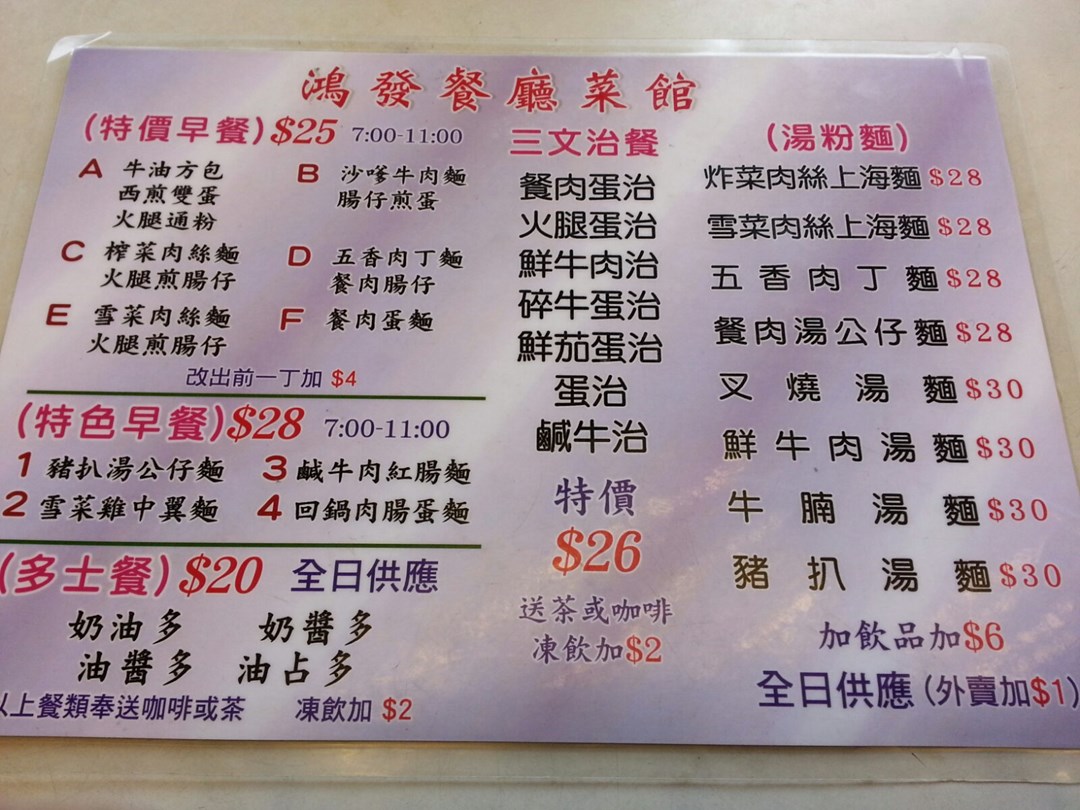 鴻發餐廳菜館
(特價早餐) $25 7:00-11:00
A 牛油方包
西煎雙蛋
火腿通粉
B 沙嗲牛肉麵
腸仔煎蛋
C 榨菜肉絲麵
火腿煎腸仔
D 五香肉丁麵
餐肉腸仔
E 雪菜肉絲麵
火腿煎腸仔
F 餐肉蛋麵
改出前一丁加 $4
(特色早餐) $28 7:00-11:00
1 豬扒湯公仔麵
2 雪菜雞中翼麵
3 鹹牛肉紅腸麵
4 回鍋肉腸蛋麵
(多士餐) $20 全日供應
奶油多 奶醬多
油醬多 油占多
以上餐類奉送咖啡或茶 凍飲加 $2
三文治餐
餐肉蛋治
火腿蛋治
鮮牛肉治
碎牛蛋治
鮮茄蛋治
蛋治
鹹牛治
特價
$26
送茶或咖啡
凍飲加$2
(湯粉麵)
炸菜肉絲上海麵 $28
雪菜肉絲上海麵 $28
五香肉丁麵 $28
餐肉湯公仔麵 $28
叉燒湯麵 $30
鮮牛肉湯麵 $30
牛腩湯麵 $30
豬扒湯麵 $30
加飲品加$6
全日供應 (外賣加$1)